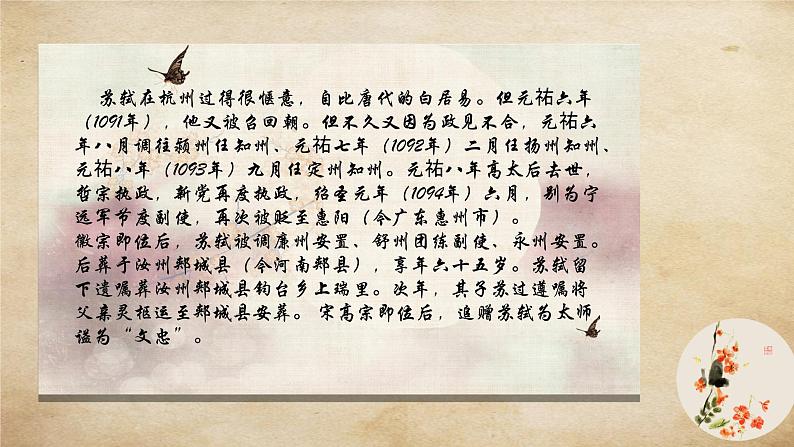 苏轼在杭州过得很惬意，自比唐代的白居易。但元祐六年
（1091年），他又被召回朝。但不久又因为政见不合，元祐六
年八月调往颍州任知州、元祐七年（1092年）二月任扬州知州、
元祐八年（1093年）九月任定州知州。元祐八年高太后去世，
哲宗执政，新党再度执政，绍圣元年（1094年）六月，别为宁
远军节度副使，再次被贬至惠阳（今广东惠州市）。
徽宗即位后，苏轼被调廉州安置、舒州团练副使、永州安置。
后葬于汝州郏城县（今河南郏县），享年六十五岁。苏轼留
下遗嘱葬汝州郏城县钧台乡上瑞里。次年，其子苏过遵嘱将
父亲灵柩运至郏城县安葬。 宋高宗即位后，追赠苏轼为太师
谥为“文忠”。